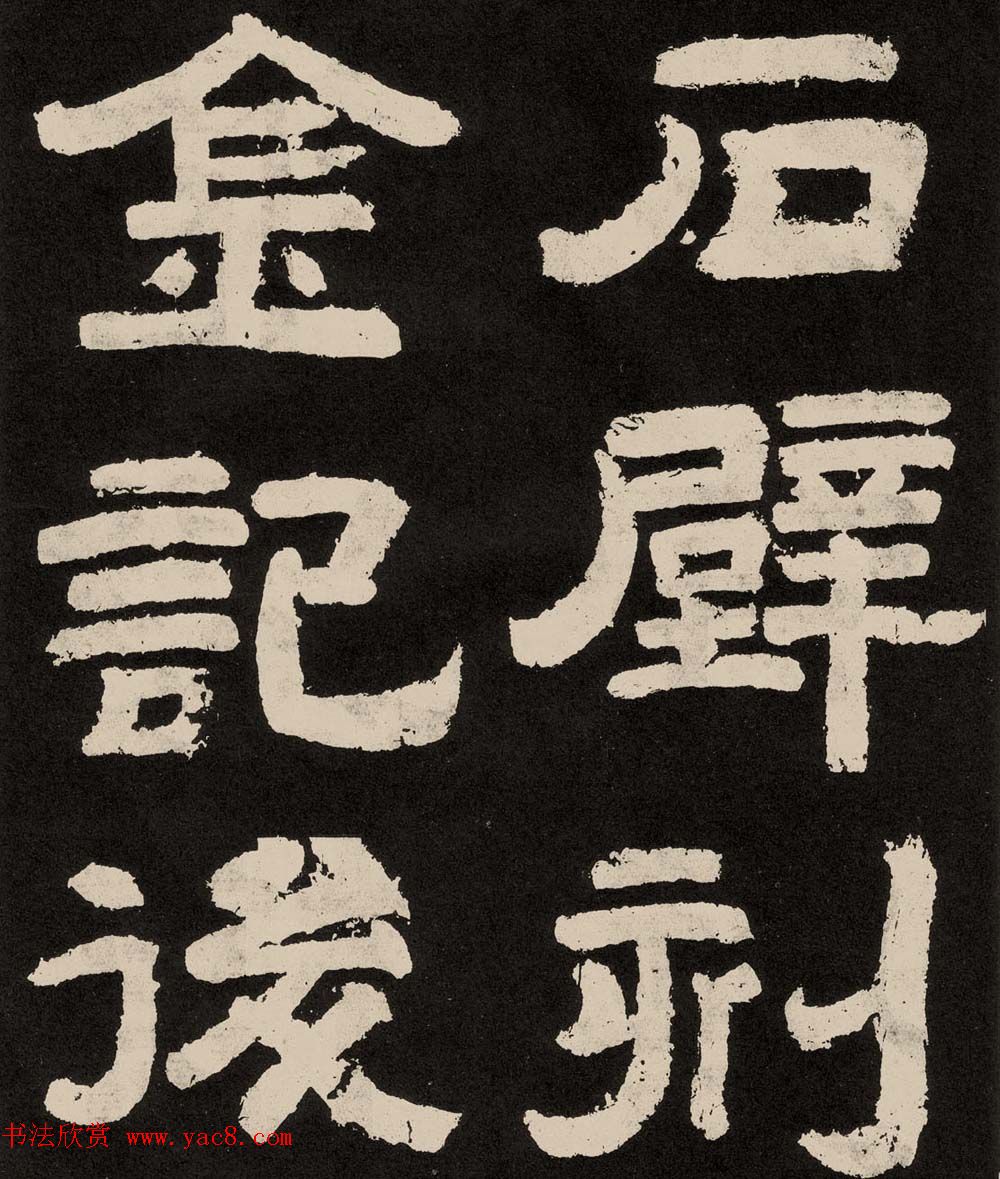 石壁刻
金記後
书法欣赏 www.yac8.com